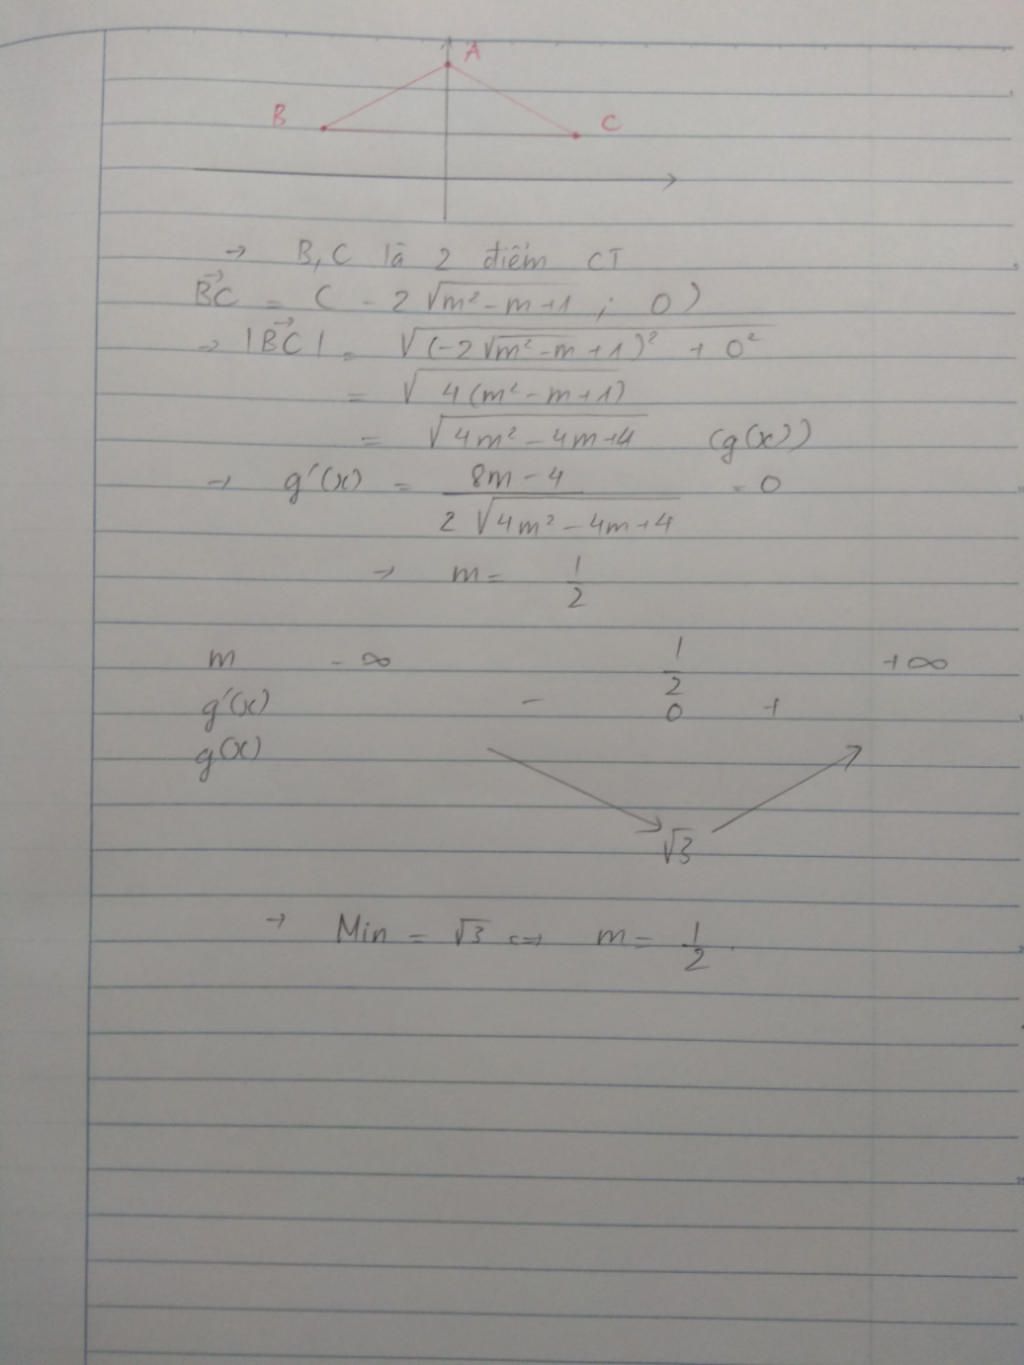 A
B
C
→ B, C là 2 điểm CT
$\vec{BC}$ = ( - 2 √(m² - m + 1) ; 0 )
→ |$\vec{BC}$| = √((-2√(m² - m + 1))² + 0²)
= √(4(m² - m + 1))
= √(4m² - 4m + 4) (g(x))
→ g'(x) = (8m - 4) / (2√(4m² - 4m + 4)) = 0
→ m = 1/2
m - ∞ 1/2 + ∞
g'(x) - 0 +
g(x)
√3
→ Min = √3 ⇔ m = 1/2 .